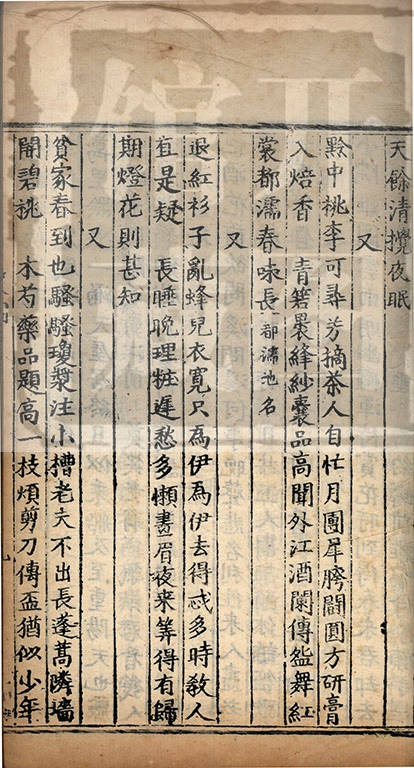 天餘清攪夜眠
又
黔中桃李可尋芳摘茶人自忙月團犀胯鬪圓方研膏
入焙香　青箬裹絳紗囊品高聞外江酒闌傳盌舞紅
裳都濡春味長都濡池名
又
退紅衫子亂蜂兒衣寬只爲伊爲伊去得忒多時敎人
直是疑　長睡晚理粧遲愁多懶畫眉夜来筭得有歸
期燈花則甚知
又
貧家春到也騷騷瓊漿注小槽老夫不出長蓬蒿隣墻
開碧桃　木芍藥品題高一枝煩剪刀傳盃猶似少年